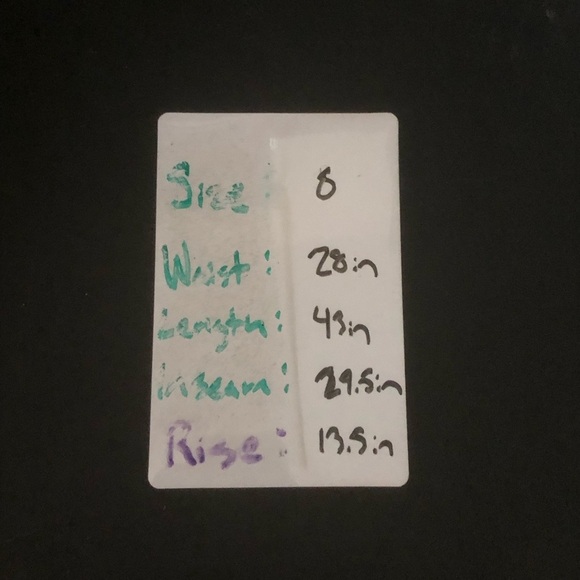 Size: 8
Waist: 28in
Length: 43in
Inseam: 29.5in
Rise: 13.5in